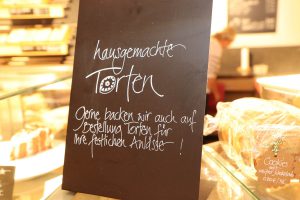 hausgemachte
Torten
Gerne backen wir auch auf
Bestellung Torten für
Ihre festlichen Anlässe!
Cookie